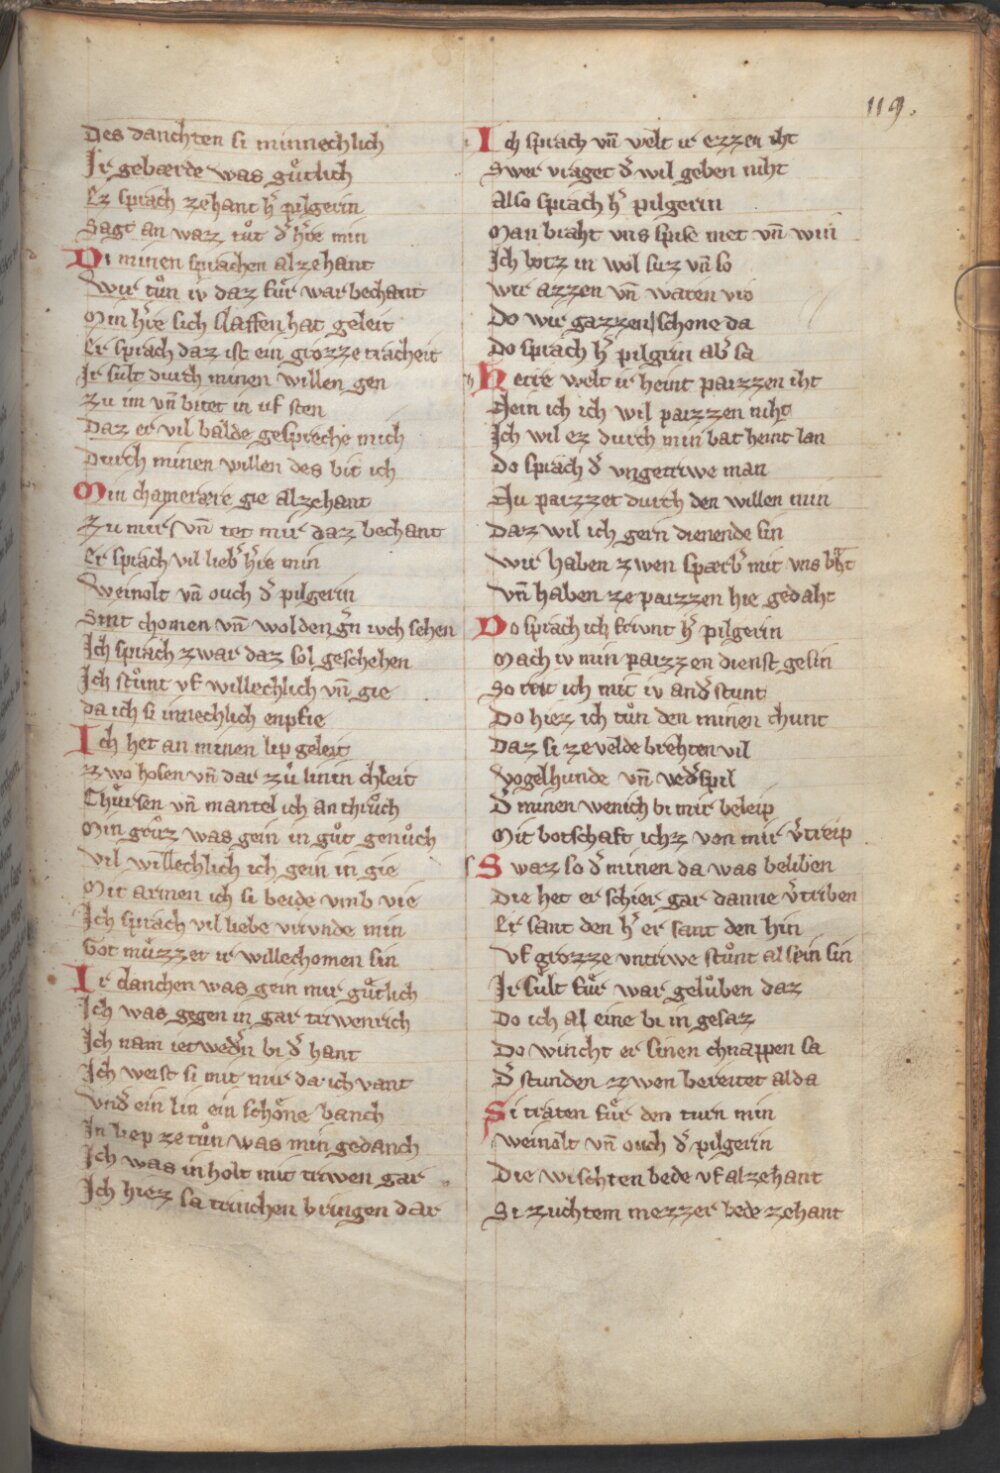 119.
Des danchten si minnechlich
Ir gebærde was guͤtlich
Ez sprach zehant h̾ pilgerin
Sagt an waz tuͦt d̾ h̾re min
Di minen sprachen alzehant
Wir tuͦn iv daz fuͤr war bechant
Min h̾re sich slaffen hat geleit
Er sprach daz ist ein grozze tracheit
Ir sult durch minen willen gen
Zu im vn̄ bitet in vf sten
Daz er vil balde gespreche mich
Durch minen willen des bit ich
Min chamerære gie alzehant
Zu mir vn̄ tet mir daz bechant
Er sprach vil lieb̾ h̾re min
Weinolt vn̄ ouch d̾ pilgerin
Sint chomen vn̄ wolden g̾n ivch sehen
Ich sprach zwar daz sol geschehen
Ich stuͦnt vf willechlich vn̄ gie
da ich si innechlich enpfie
Ich het an minen lip geleit
Zwo hosen vn̄ dar zuͦ linin chleit
Chuͤrsen vn̄ mantel ich an thruͦch
Min gruͦz was gein in guͦt genuͦch
Vil willechlich ich gein in gie
Mit armen ich si beide vmb vie
Ich sprach vil liebe vrivnde min
Got muͤzzet ir willechomen sin
Ir danchen was gein mir guͤtlich
Ich was gegen in gar triwenrich
Ich nam ietwed̾n bi d̾ hant
Ich weist si mit mir da ich vant
Vnd̾ ein lin ein schoͤne banch
In liep ze tuͦn was min gedanch
Ich was in holt mit triwen gar
Ich hiez sa trinchen bringen dar
Ich sprach vn̄ welt ir ezzen iht
Swer vraget d̾ wil geben niht
Also sprach h̾ pilgerin
Man braht vns spise met vn̄ win
Ich botz in wol suz vn̄ so
Wir azzen vn̄ waren vro
Do wir gazzen schone da
Do sprach h̾ pilgrin ab̾ sa
Herre welt ir heint paizzen iht
Nein ich ich wil paizzen niht
Ich wil ez durch min bat heint lan
Do sprach d̾ vngetriwe man
Nu paizzet durch den willen min
Daz wil ich gern dienende sin
Wir haben zwen spærb̾ mit vns b̾ht
Vn̄ haben ze paizzen hie gedaht
Do sprach ich frivnt h̾ pilgerin
Mach iv min paizzen dienst gesin
So rit ich mit iv and̾ stunt
Do hiez ich tuͦn den minen chunt
Daz si ze velde brehten vil
Vogelhunde vn̄ ved̾spil
D̾ minen wenich bi mir beleip
Mit botschaft ichz von mir v̾treip
Swaz so d̾ minen da was beliben
Die het er schier gar danne v̾triben
Er sant den h̾ er sant den hin
Vf grozze vntriwe stuͦnt al sein sin
Ir sult fuͤr war geluͦben daz
Do ich al eine bi in gesaz
Do wincht er sinen chnappen sa
D̾ stunden zwen bereitet alda
Si traten fuͤr den turn min
Weinolt vn̄ ouch d̾ pilgerin
Die wischten bede vf alzehant
Si zuchtem mezzer bede zehant